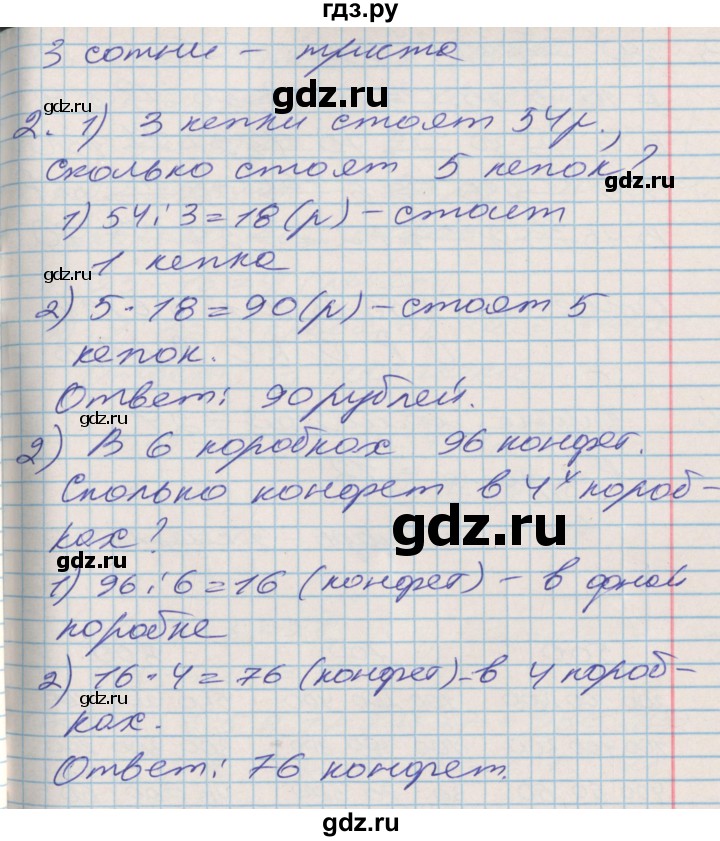 гдз.ру
3 сотни – триста
gdz.ru
gdz.ru
2. 1) 3 кепки стоят 54 р.,
Сколько стоят 5 кепок?
gdz.ru
1) 54 : 3 = 18 (р) – стоит
1 кепка
gdz.ru
2) 5 · 18 = 90 (р) – стоят 5
кепок.
gdz.ru
Ответ: 90 рублей.
gdz.ru
2) В 6 коробках 96 конфет.
gdz.ru
Сколько конфет в 4х короб-
ках?
gdz.ru
gdz.ru
1) 96 : 6 = 16 (конфет) – в дной
коробке
2) 16 · 4 = 76 (конфет) – в 4 короб-
gdz.ru
gdz.ru
ках.
Ответ: 76 конфет.
gdz.ru
gdz.ru